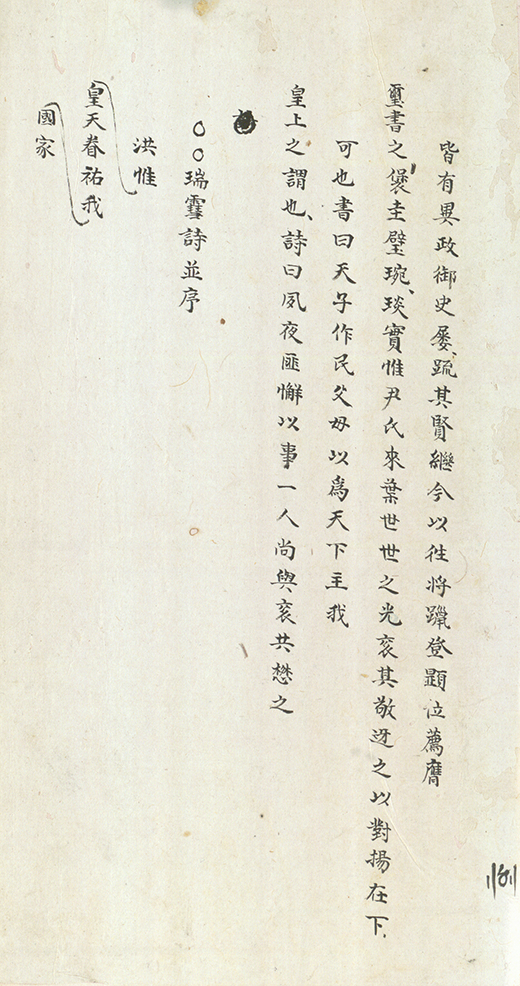 皆有異政御史屢疏其賢繼今以徃將躐登顯位薦膺
璽書之褒圭璧琬琰實惟尹氏來葉世世之光衮其敬迓之以對揚在下
可也書曰天子作民父母以為天下主我
皇上之謂也詩曰夙夜匪懈以事一人尚與衮共懋之
○○瑞雪詩並序
洪惟
皇天眷祐我
國家